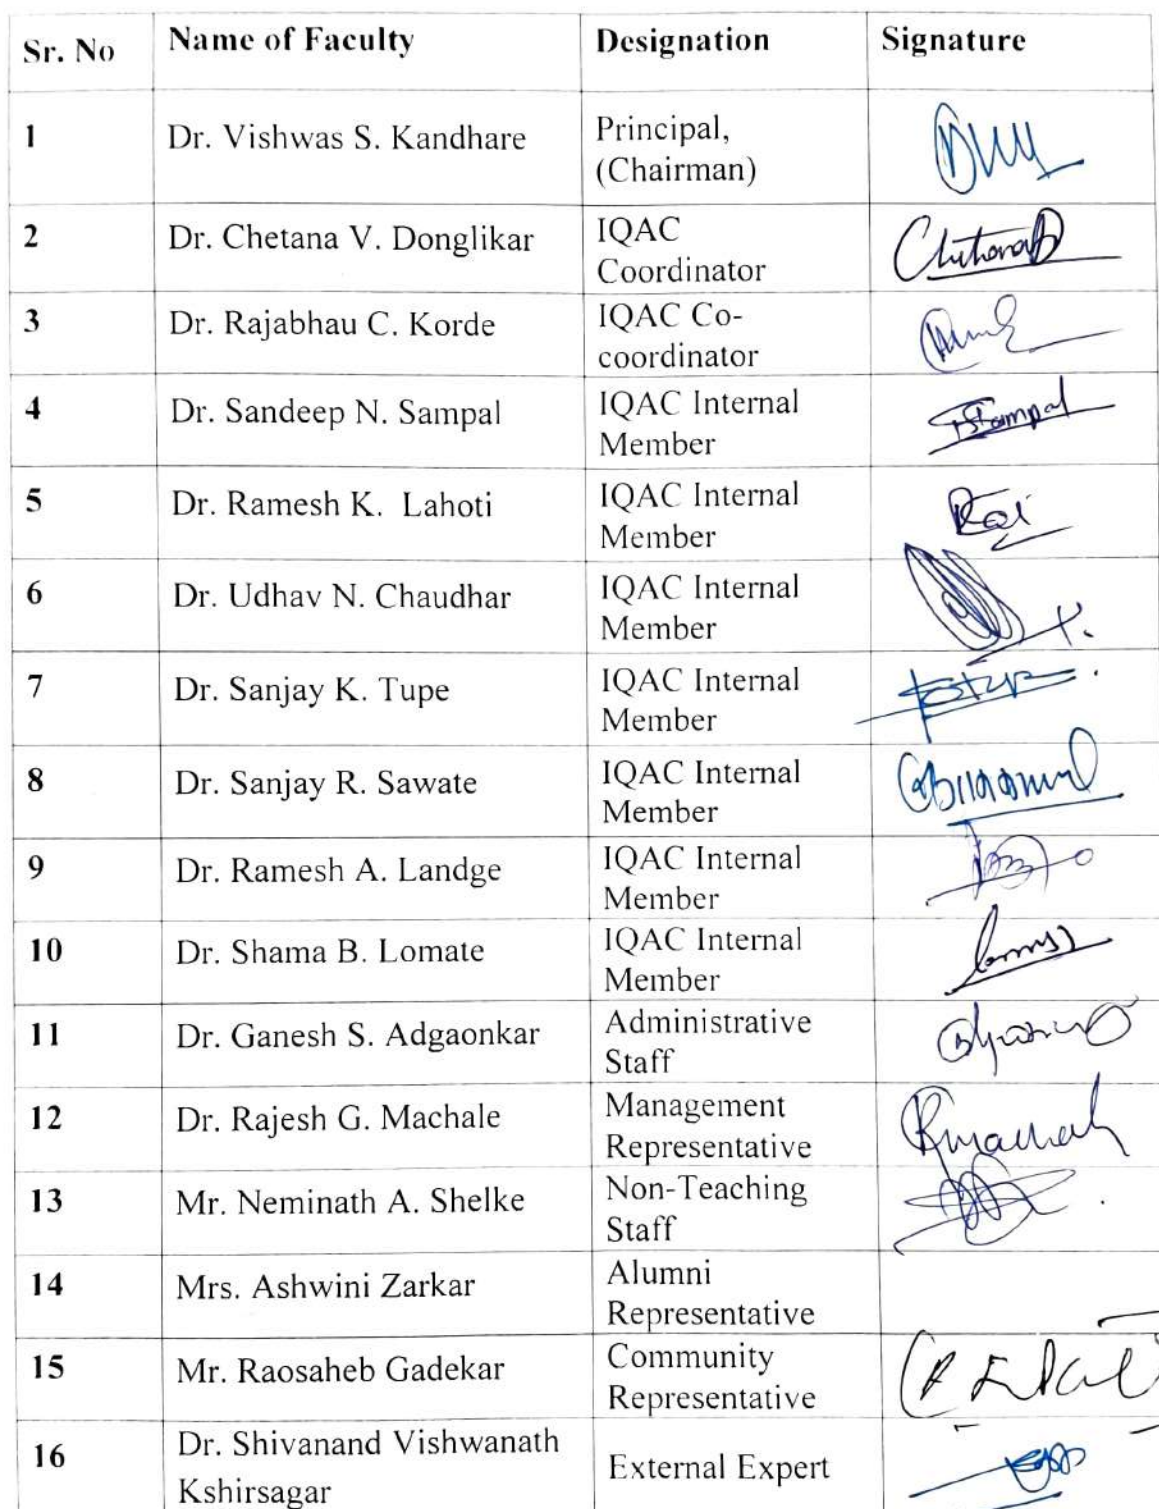 Sr. No Name of Faculty Designation Signature
1 Dr. Vishwas S. Kandhare Principal,
(Chairman)
2 Dr. Chetana V. Donglikar IQAC
Coordinator
3 Dr. Rajabhau C. Korde IQAC Co-
coordinator
4 Dr. Sandeep N. Sampal IQAC Internal
Member
5 Dr. Ramesh K. Lahoti IQAC Internal
Member
6 Dr. Udhav N. Chaudhar IQAC Internal
Member
7 Dr. Sanjay K. Tupe IQAC Internal
Member
8 Dr. Sanjay R. Sawate IQAC Internal
Member
9 Dr. Ramesh A. Landge IQAC Internal
Member
10 Dr. Shama B. Lomate IQAC Internal
Member
11 Dr. Ganesh S. Adgaonkar Administrative
Staff
12 Dr. Rajesh G. Machale Management
Representative
13 Mr. Neminath A. Shelke Non-Teaching
Staff
14 Mrs. Ashwini Zarkar Alumni
Representative
15 Mr. Raosaheb Gadekar Community
Representative
16 Dr. Shivanand Vishwanath External Expert
Kshirsagar